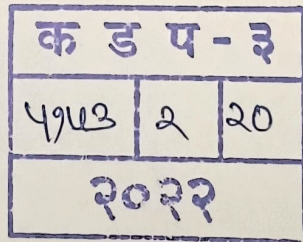 क ड प - ३
५१५३ २ २०
२०२२